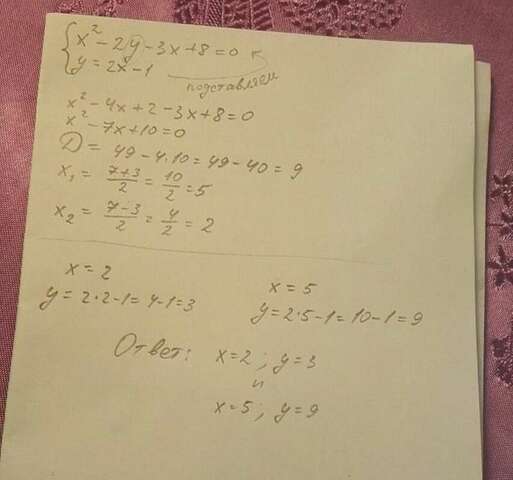 x² - 2y - 3x + 8 = 0
y = 2x - 1
подставляем
x² - 4x + 2 - 3x + 8 = 0
x² - 7x + 10 = 0
D = 49 - 4·10 = 49 - 40 = 9
x₁ = (7+3)/2 = 10/2 = 5
x₂ = (7-3)/2 = 4/2 = 2
x = 2
y = 2·2 - 1 = 4 - 1 = 3
x = 5
y = 2·5 - 1 = 10 - 1 = 9
Ответ: x = 2; y = 3
и
x = 5; y = 9